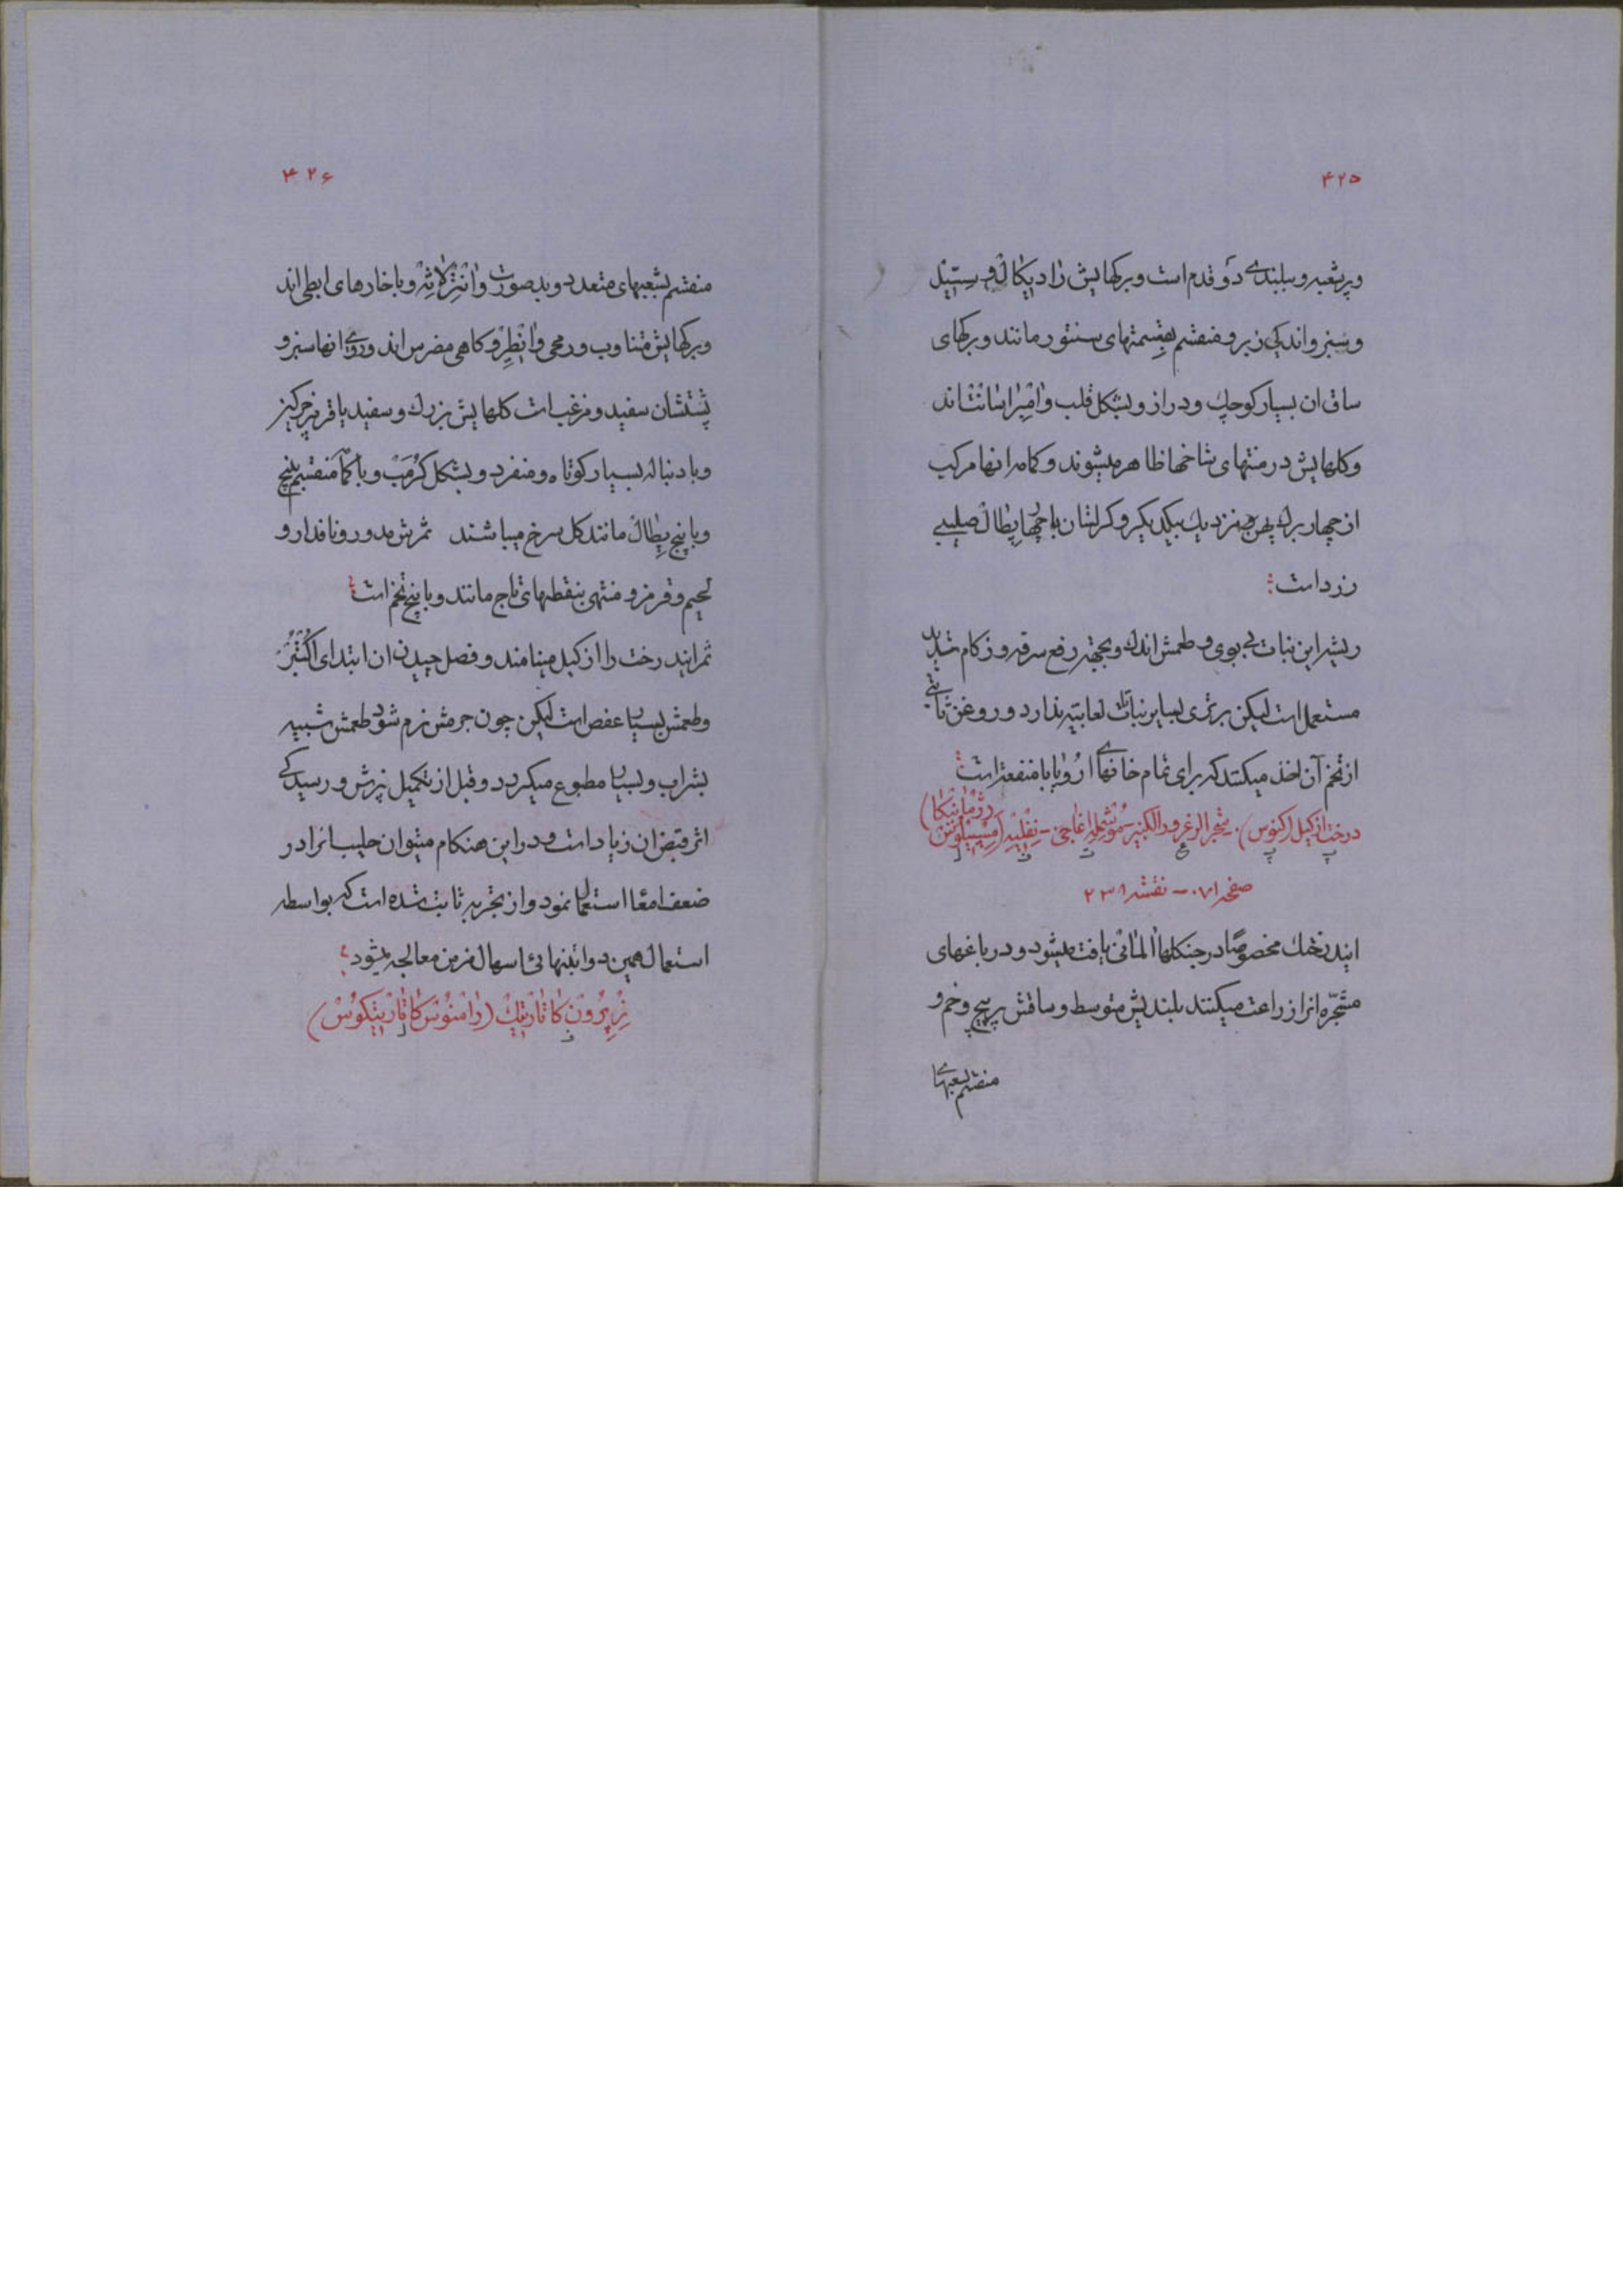 ۴۲۵
و پرشعبه و ببلندی دو قدم است و برکهایش رادیکال و سسیل
و سبز و اندکی زبر و منقسم بقسمتهای سنتور مانند و برکهای
ساق ان بسیار کوچک و دراز و بشکل قلب و امبراسانت اند
و کلهایش در منتهای شاخها ظاهر میشوند و کاسه انها مرکب
از چهار برك پهن و نزدیك بیکدیکر و کرلشان با چهار پطال صلیبی
زرد است
ریشه این نبات بی بوی و طعمش اندك و بجهة رفع سرفه و زکام شدید
مستعمل است لیکن برتری بسایر نباتات لعابیه ندارد و روغن ثابتی
از تخم آن اخذ میکنند که برای تمام خانهای اروپا با منفعة است
درخت ازکیل (کنوس). شجر الزعرور الکبیر - موشمله اغاجی - نفلیه (مسپیلوس
ژرمانیکا)
صفحه ۱۰۷ - نقشه ۲۳۸
ایندرخت مخصوصًا در جنکلهای المانی یافت میشود و در باغهای
مشجّره انرا زراعت میکنند بلندیش متوسط و ساقش پرپیچ و خم و
منقسم بشعبهای
۴۲۶
منقسم بشعبهای متعدد و بدصورت و انترلاثه و با خارهای ابطی اند
و برکهایش متناوب و رمحی و انطر و کاهی مضرس اند و روی انها سبز و
پشتشان سفید و مزغب است کلهایش بزرك و سفید یا قرمز چرکین
و با دنباله بسیار کوتاه و منفرد و بشکل کرمب و با کاسه منقسم بپنج
و با پنج پطال مانند کل سرخ میباشند ثمرش مدور و نافدار و
لحیم و قرمز و منتهی بنقطهای تاج مانند و با پنج تخم است
ثمر ایندرخت را ازکیل مینامند و فصل چیدن ان ابتدای اکتبر
و طعمش بسیار عفص است لیکن چون جرمش نرم شود طعمش شبیه
بشراب و بسیار مطبوع میکردد و قبل از تکمیل نرمش و رسیدکی
اثر قبض ان زیاد است و در این هنکام میتوان حلیب انرا در
ضعف امعا استعمال نمود و از تجربه ثابت شده است که بواسطه
استعمال همین دوا بتنهائی اسهال مزمن معالجه میشود
نرپرون کاتارتیك (رامنوس کاتارتیکوس)